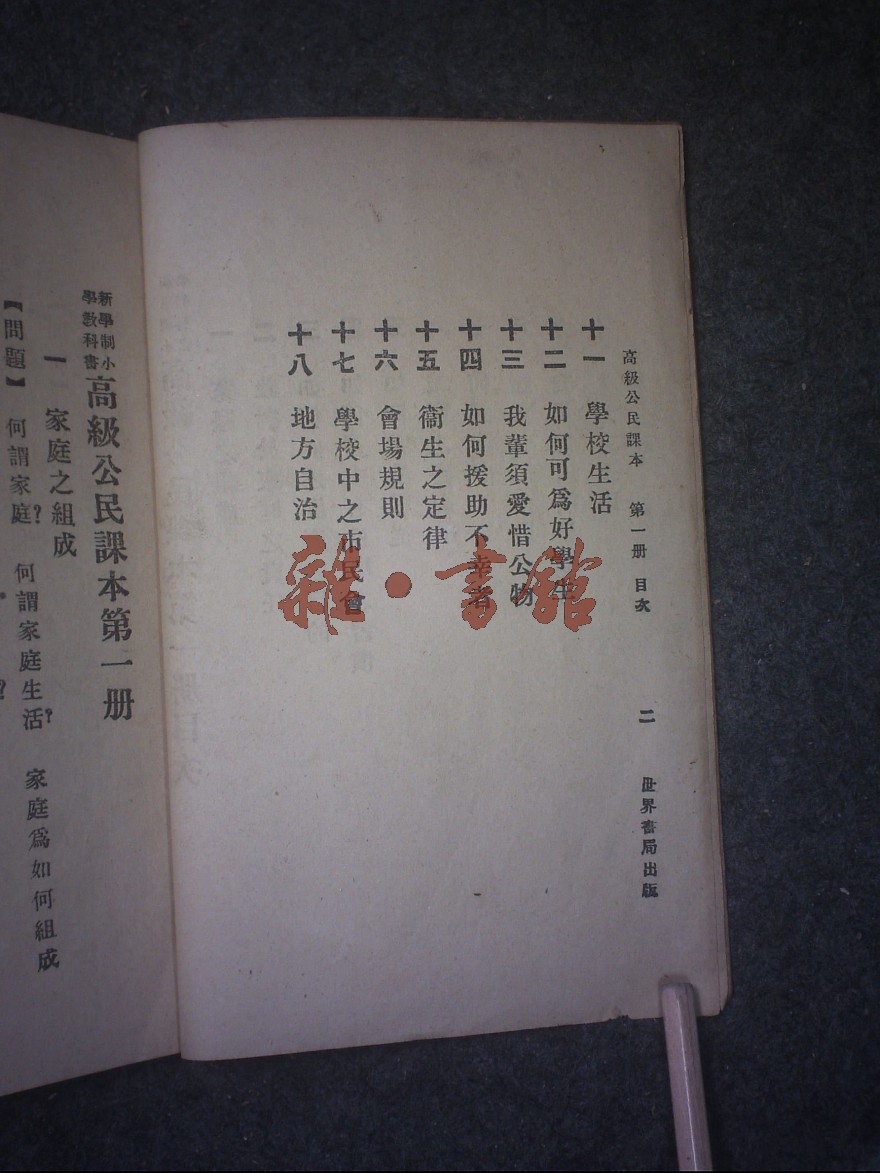 高級公民課本 第一册 目次 二 世界書局出版
十一 學校生活
十二 如何可爲好學生
十三 我輩須愛惜公物
十四 如何援助不幸者
十五 衞生之定律
十六 會場規則
十七 學校中之市民會
十八 地方自治
雜·書館
新學制小學教科書 高級公民課本第一册
一 家庭之組成
【問題】 何謂家庭? 何謂家庭生活? 家庭爲如何組成